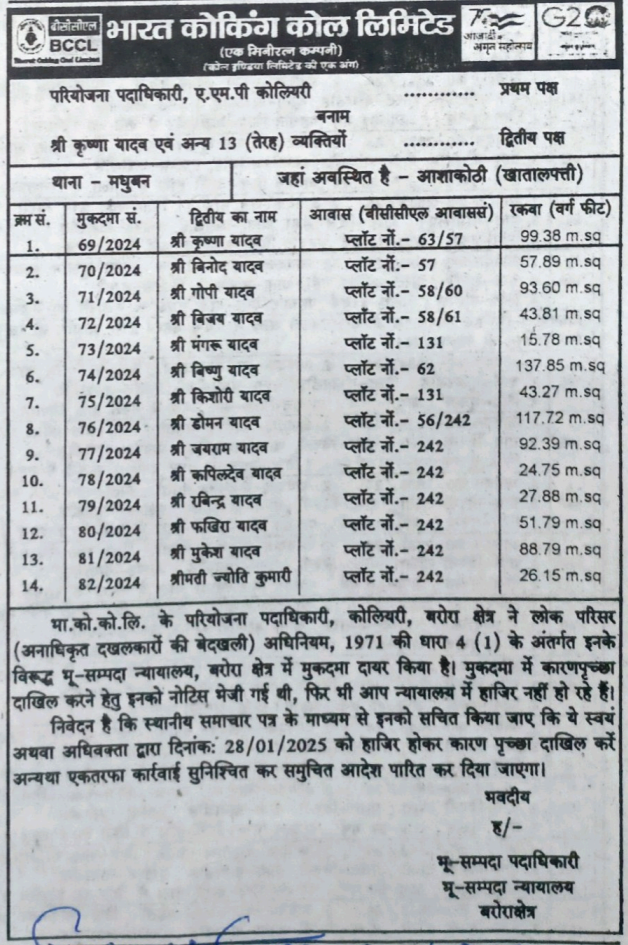 बीसीसीएल
BCCL
Bharat Coking Coal Limited
भारत कोकिंग कोल लिमिटेड
(एक मिनीरत्न कम्पनी)
(कोल इण्डिया लिमिटेड की एक अंग)
आजादी का
अमृत महोत्सव
G20
परियोजना पदाधिकारी, ए.एम.पी कोलियरी ............. प्रथम पक्ष
बनाम
श्री कृष्णा यादव एवं अन्य 13 (तेरह) व्यक्तियों ............. द्वितीय पक्ष
थाना – मधुबन जहां अवस्थित है – आशाकोठी (खातालपत्ती)
क्रम सं. मुकदमा सं. द्वितीय का नाम आवास (बीसीसीएल आवाससं) रकवा (वर्ग फीट)
1. 69/2024 श्री कृष्णा यादव प्लॉट नों.– 63/57 99.38 m.sq
2. 70/2024 श्री बिनोद यादव प्लॉट नों.– 57 57.89 m.sq
3. 71/2024 श्री गोपी यादव प्लॉट नों.– 58/60 93.60 m.sq
4. 72/2024 श्री बिजय यादव प्लॉट नों.– 58/61 43.81 m.sq
5. 73/2024 श्री मंगरू यादव प्लॉट नों.– 131 15.78 m.sq
6. 74/2024 श्री बिष्णु यादव प्लॉट नों.– 62 137.85 m.sq
7. 75/2024 श्री किशोरी यादव प्लॉट नों.– 131 43.27 m.sq
8. 76/2024 श्री डोमन यादव प्लॉट नों.– 56/242 117.72 m.sq
9. 77/2024 श्री जयराम यादव प्लॉट नों.– 242 92.39 m.sq
10. 78/2024 श्री कपिलदेव यादव प्लॉट नों.– 242 24.75 m.sq
11. 79/2024 श्री रबिन्द्र यादव प्लॉट नों.– 242 27.88 m.sq
12. 80/2024 श्री फखिरा यादव प्लॉट नों.– 242 51.79 m.sq
13. 81/2024 श्री मुकेश यादव प्लॉट नों.– 242 88.79 m.sq
14. 82/2024 श्रीमती ज्योति कुमारी प्लॉट नों.– 242 26.15 m.sq
भा.को.को.लि. के परियोजना पदाधिकारी, कोलियरी, बरोरा क्षेत्र ने लोक परिसर
(अनाधिकृत दखलकारों की बेदखली) अधिनियम, 1971 की धारा 4 (1) के अंतर्गत इनके
विरूद्ध भू–सम्पदा न्यायालय, बरोरा क्षेत्र में मुकदमा दायर किया है। मुकदमा में कारणपृच्छा
दाखिल करने हेतु इनको नोटिस भेजी गई थी, फिर भी आप न्यायालय में हाजिर नहीं हो रहे हैं।
निवेदन है कि स्थानीय समाचार पत्र के माध्यम से इनको सचित किया जाए कि ये स्वयं
अथवा अधिवक्ता द्वारा दिनांक: 28/01/2025 को हाजिर होकर कारण पृच्छा दाखिल करें
अन्यथा एकतरफा कार्रवाई सुनिश्चित कर समुचित आदेश पारित कर दिया जाएगा।
भवदीय
ह/–
भू–सम्पदा पदाधिकारी
भू–सम्पदा न्यायालय
बरोराक्षेत्र